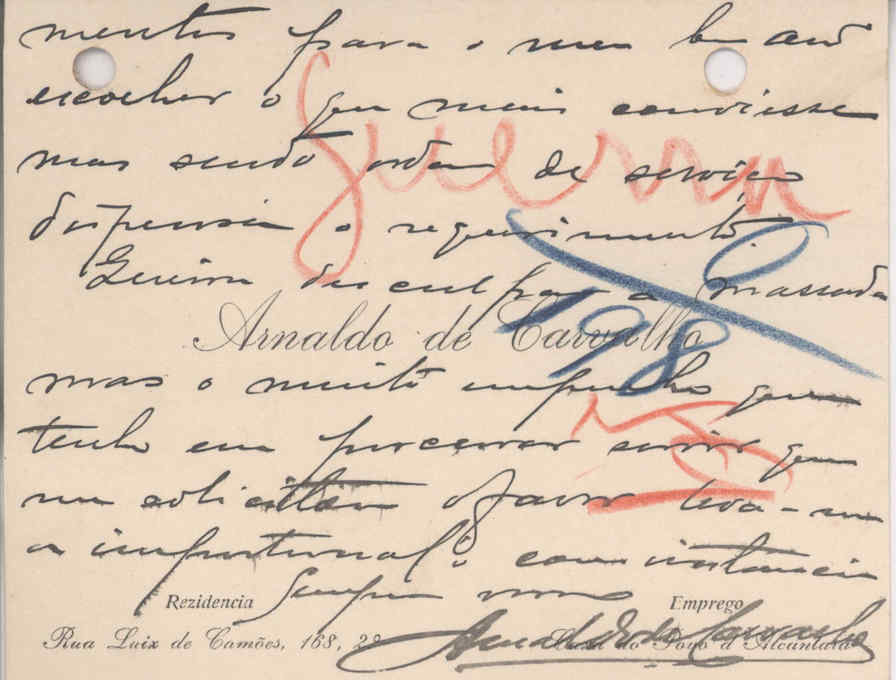 mentos para o meu
escolher o que mais conviesse
mas sendo ordem de serviço
dispensa o requerimento.
Queira desculpar a massada
Guerra
198
Arnaldo de Carvalho
mas o muito empenho que
tenho em procurar servir quem
me solicita o favor leva-me
a importunal-o com instancia
Sempre
Rezidencia
Emprego
Rua Luiz de Camões, 168, 2º
Casa do Povo d'Alcantara
Arnaldo de Carvalho